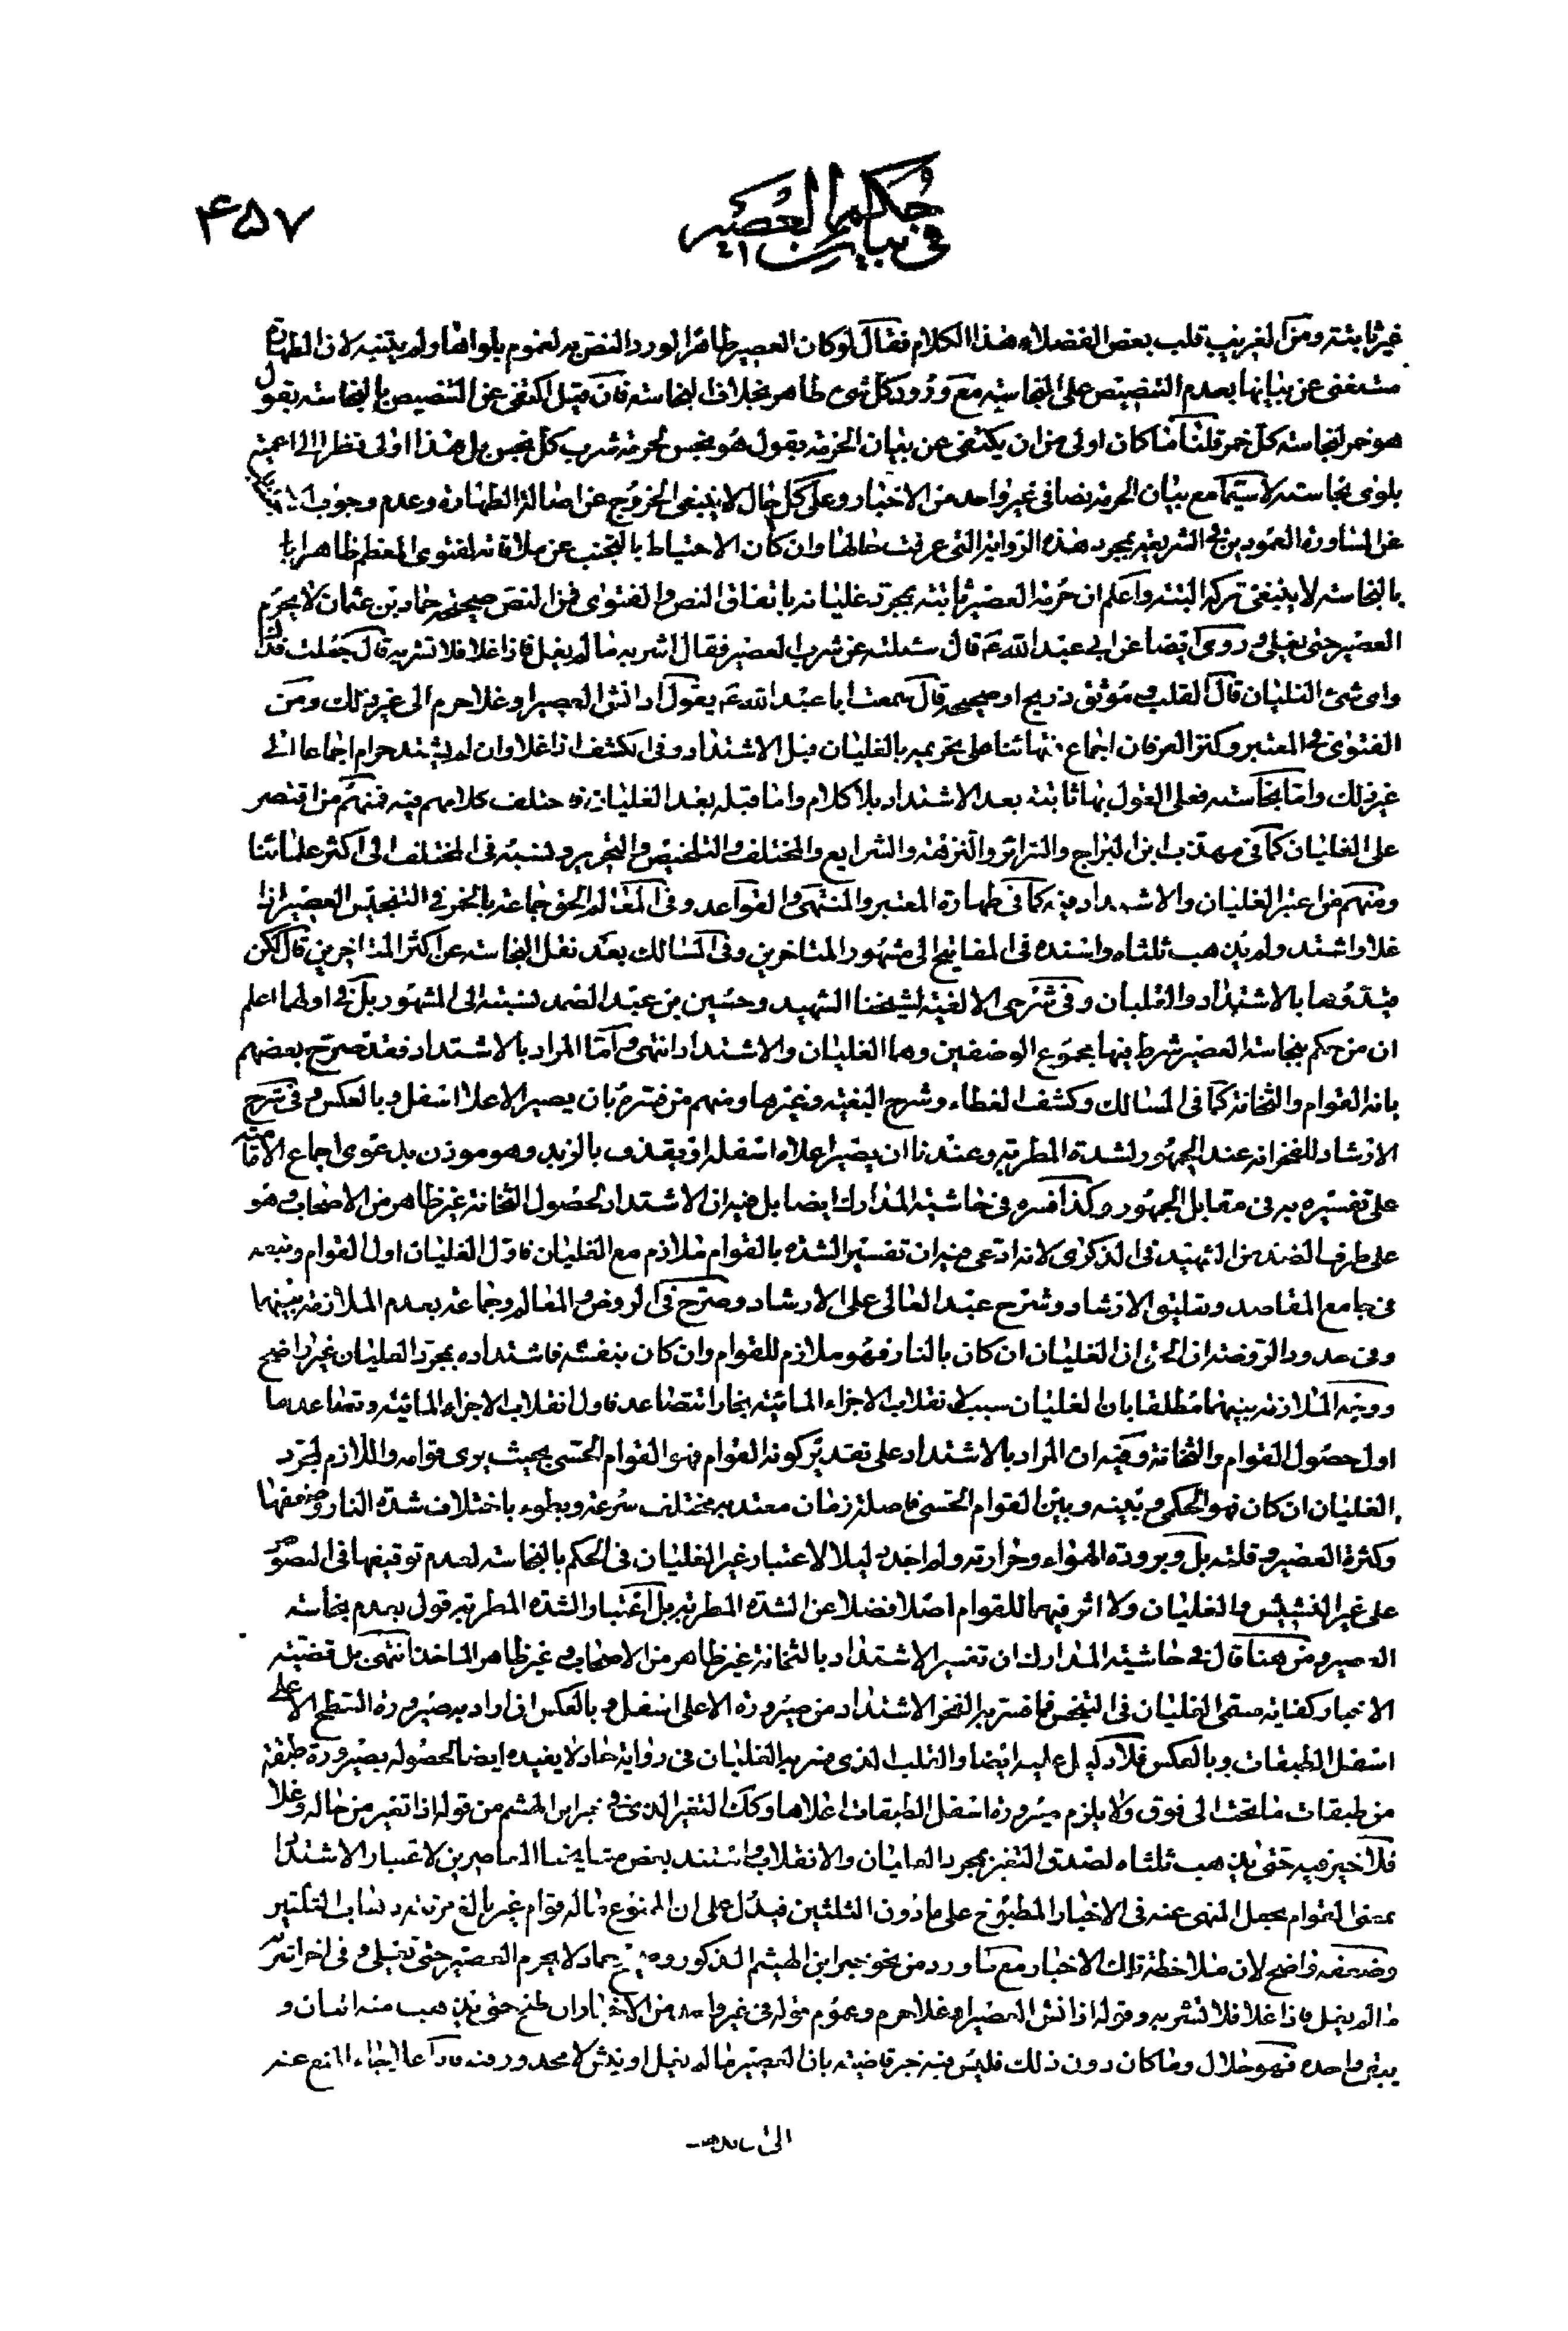 ۴۵۷
في بيان حكم العصير
غير ثابتة ومن الغريب قلب بعض الفضلاء هذا الكلام فقال لو كان العصير طاهرا لورد النص به لعموم بلواها ولم يتنبه لان الطهارة
مستغنى عن بيانها بعدم التنصيص على النجاسة مع ورود كل شئ طاهر بخلاف النجاسة فان قيل اكتفى عن التنصيص بالنجاسة بقول
هو خمر لنجاسة كل خمر قلنا ما كان اولى من ان يكتفى عن بيان الحرمة بقول هو نجس لحرمة شرب كل نجس بل هذا اولى نظرا الى اعمية
بلوى نجاسته لا سيما مع بيان الحرمة نصا في غير واحد من الاخبار وعلى كل حال لا ينبغي الخروج عن اصالة الطهارة وعدم وجوب
عن المساورة العمودين في الشريعة بمجرد هذه الرواية التي عرفت حالها وان كان الاحتياط بالتجنب عن ملاقاته لفتوى المعظم ظاهرا
بالنجاسة لا ينبغي تركه البتة واعلم ان حرمة العصير ثابتة بمجرد غليانه باتفاق النص والفتوى فمن النص صحيحة حماد بن عثمان لا يحرم
العصير حتى يغلى وروى ايضا عن ابي عبد الله ع قال سئلته عن شرب العصير فقال اشربه ما لم يغل فاذا غلا فلا تشربه قال جعلت فداك
واى شئ الغليان قال القلب وموثق ذريح او صحيحه قال سمعت ابا عبد الله ع يقول اذا نش العصير او غلا حرم الى غير ذلك ومن
الفتوى في المعتبر وكنز العرفان اجماع فقهائنا على تحريمه بالغليان قبل الاشتداد وفي الكشف اذا غلا وان لم يشتد حرام اجماعا الى
غير ذلك واما نجاسته فعلى القول بها ثابتة بعد الاشتداد بلا كلام واما قبله بعد الغليان فاختلف كلامهم فيه فمنهم من اقتصر
على الغليان كما في مهذب ابن البراج والسرائر والنزهة والشرايع والمختلف والتلخيص والتحرير ونسبه في المختلف الى اكثر علمائنا
ومنهم من اعتبر الغليان والاشتداد فيه كما في طهارة المعتبر والمنتهى والقواعد وفي المعالم الحق جماعة بالخمر في التنجيس العصير اذا
غلا واشتد ولم يذهب ثلثاه واسنده في المفاتيح الى مشهور المتاخرين وفي المسالك بعد نقل النجاسة عن اكثر المتاخرين قال لكن
قيدوها بالاشتداد والغليان وفي شرحي الالفية لشيخنا الشهيد وحسين بن عبد الصمد نسبته الى المشهور بل في اولهما اعلم
ان من حكم بنجاسة العصير شرط فيها مجموع الوصفين وهما الغليان والاشتداد انتهى واما المراد بالاشتداد فقد صرح بعضهم
بانه القوام والثخانة كما في المسالك وكشف الغطاء وشرح البغية وغيرها ومنهم من فسره بان يصير الاعلا اسفل وبالعكس وفي شرح
الارشاد للفخر انه عند الجمهور لشدة المطربة وعندنا ان يصير اعلاه اسفله او يقذف بالزبد وهو موذن بدعوى اجماع الامامية
على تفسيره به في مقابل الجمهور وكذا فسره في حاشية المدارك ايضا بل فيه ان الاشتداد لحصول الثخانة غير ظاهر من الاصحاب وهو
على طرف الضد من الشهيد في الذكرى لانه ادعى فيه ان تفسير الشدة بالقوام ملازم مع الغليان فاول الغليان اول القوام وتبعه
في جامع المقاصد وتعليق الارشاد وشرح عبد العالى على الارشاد وصرح في الروض والمعالم وجماعة بعدم الملازمة بينهما
وفي حدود الروضة ان الحق ان الغليان ان كان بالنار فهو ملازم للقوام وان كان بنفسه فاشتداده بمجرد الغليان غير واضح
ووجه الملازمة بينهما مطلقا بان الغليان سبب لانقلاب الاجزاء المائية بخارا تتصاعد فاول انقلاب الاجزاء المائية وتصاعدها
اول حصول القوام والثخانة وفيه ان المراد بالاشتداد على تقدير كونه القوام فهو القوام الحسى بحيث يرى قوامه واللازم لمجرد
الغليان ان كان فهو الحكمى وبينه وبين القوام الحسى فاصلة زمان معتد به مختلف سرعة وبطوء باختلاف شدة النار وضعفها
وكثرة العصير وقلته بل وبرودة الهواء وحرارته ولم اجد دليلا لاعتبار غير الغليان في الحكم بالنجاسة لعدم توقيفها في النصوص
على غير النشيش والغليان ولا اثر فيهما للقوام اصلا فضلا عن الشدة المطربة بل اعتبار الشدة المطربة قول بعدم نجاسة
العصير ومن هنا قال في حاشية المدارك ان تفسير الاشتداد بالثخانة غير ظاهر من الاصحاب وغير ظاهر الماخذ انتهى بل قضية
الاخبار كفاية مسمى الغليان في التنجس فما فسر به الفخر الاشتداد من صيرورة الاعلى اسفل وبالعكس ان اراد به صيرورة السطح الاعلى
اسفل الطبقات وبالعكس فلا دليل عليه ايضا والقلب الذى فسر به الغليان في رواية حماد لا يفيده ايضا لحصوله بصيرورة طبقة
من طبقات ما تحت الى فوق ولا يلزم صيرورة اسفل الطبقات اعلاها وكذا التغير الذى في خبر ابن الهشيم من قوله اذا تغير من حاله وغلا
فلا خير فيه حتى يذهب ثلثاه لصدق التغير بمجرد الغليان والانقلاب واستند بعض مشايخنا المعاصرين لاعتبار الاشتداد
بمعنى القوام بجعل المنهى عنه في الاخبار المطبوخ على ما دون الثلثين فيدل على ان الممنوع ما له قوام غير بالغ مرتبة ذهاب الثلثين
وضعفه واضح لان ملاحظة تلك الاخبار مع ما ورد من نحو خبر ابن الهيثم المذكور وصحيح حماد لا يحرم العصير حتى يغلى وفي اخر اشربه
ما لم يغل فاذا غلا فلا تشربه وقوله اذا نش العصير او غلا حرم وعموم قوله في غير واحد من الاخبار ان طبخ حتى يذهب منه اثنان و
يبقى واحد فهو حلال وما كان دون ذلك فليس فيه خير قاضية بان العصير ما لم يغل او ينش لا محذور فيه